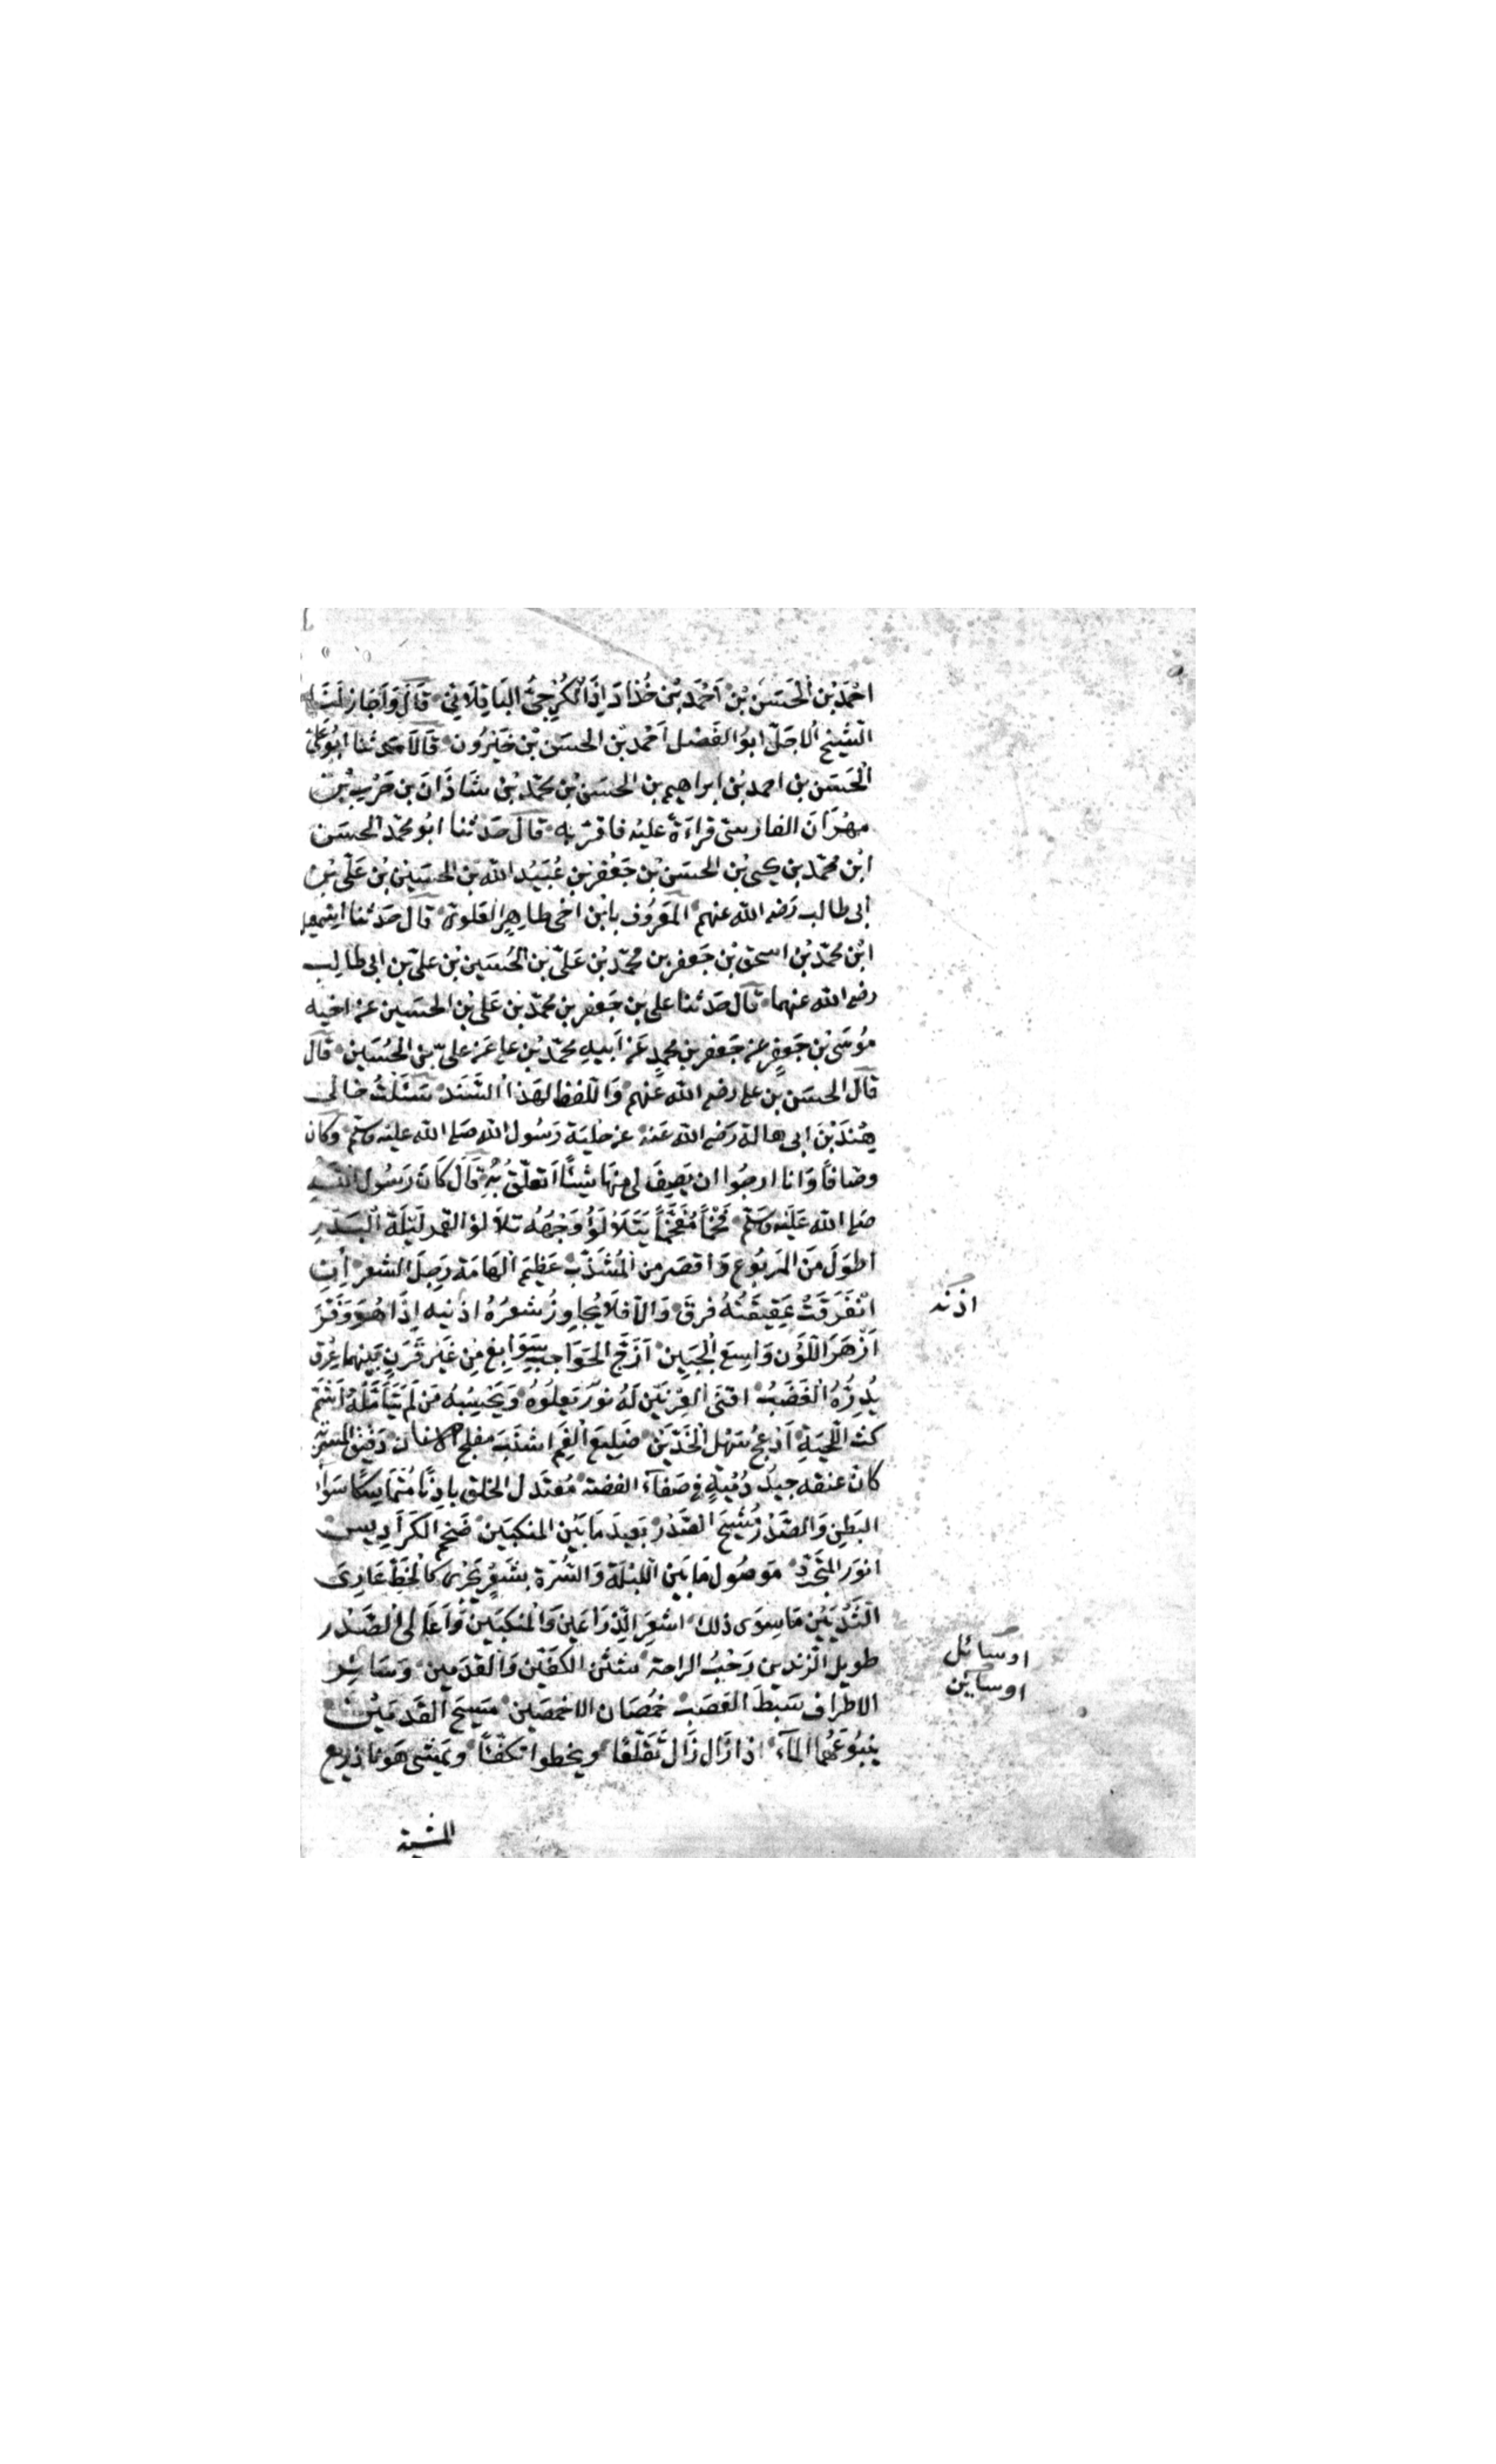 احْمَدُ بْن الْحَسَن بْن اَحْمَد بْن خُذَادَاذَا الْكَرْجِىُّ البَاقِلَانِى قَالَ وَاَجَازَ لَنَا
الشَّيْخ الاجَلّ ابوُ الفَضْل اَحْمَد بْن الحسَن بْن خَيْرُون قَالَا حدثنا ابُو عَلىّ
الْحَسَن بن احمد بْن ابراهيم بن الحسَن بْن محمّد بْن شَاذَانَ بن حَرْب بْن
مِهْرَانَ الفارسى قراءَةً عليْه فاقرّ به قال حَدثنا ابُو محمّد الحسَن
ابْن محمّد بن يحيى بْن الحسَن بْن جَعْفر بْن عُبَيْد الله بْن الحسَين بْن عَلىّ بْن
ابى طالب رَضى الله عنهم المَعْرُوف بابْن اخى طاهِر العَلوىّ قال حَدثنا اسمعيل
ابْن محمّد بْن اسحق بْن جَعفر بن محمّد بْن عَلىّ بْن الحُسَين بْن علىّ بن ابى طالِب
رضى الله عنهما قال حَدثنا على بْن جَعْفر بن محمّد بن عَلى بْن الحسَين عن اخيه
مُوسَى بْن جَعفرٍ عن جَعفر بن محمدٍ عَن اَبيهِ محمّد بْن على عَن علىّ بْن الحُسَين قال
قال الحسَن بن على رضى الله عَنهم وَاللفظ لهَذا السَّنَد سَئَلتُ خالى
هِنْدَ بْنَ ابى هالة رَضى الله عَنه عن حِليَة رَسُول الله صَلى الله عليْه وَسَلم وَكان
وصّافاً وَانا ارجُوا ان يَصِفَ لى مِنهَا شيئًا اَتَعلّقُ بِهِ قال كَانَ رَسُول الله
صَلى الله عَليْه وَسَلم فَخْمًا مُفَخَّمًا يَتَلَأْلَؤُ وَجْهُهُ تلأْلؤ القمر ليْلَة الْبَدْرِ
اطوَلَ مَن المَربُوع وَاقصَرَ من الْمُشَذَّب عَظِيمَ الْهَامَة رَجِلَ الشعر اِن
انْفَرَقَتْ عَقِيقَتُهُ فرقَ وَالا فَلا يُجاوِزُ شعَرُهُ اذنيه اِذَا هُوَ وَفَّرَهُ
اَزْهَرَ اللَّوْن وَاسِعَ الْجَبِين اَزَجَّ الحَوَاجب سَوَابِغ مِنْ غَيْر قَرَنٍ بَيْنهما عِرْق
يُدِرُّهُ الْغَضَبُ اقنَى العِرْنَيْن لَهُ نورٌ يَعلُوهُ وَيَحْسِبُهُ مَن لَمْ يَتَأَمَّلْهُ اَشَمَّ
كثّ اللِّحْيَةِ اَدْعَجَ سَهْل الْخَدَّيْن ضَلِيعَ الْفَم اشنَبَ مفلج الاسنان دَقيْق المسْرُبة
كان عنقه جيدُ دُمْيَةٍ فى صَفاء الفضّة مُعتَدل الخلق بادِنًا مُتَمَاسِكًا سَوَاءَ
البَطن وَالصّدْر مُشيْحَ الصّدْر بَعيدَ مَا بَيْن المنكبَين ضَخم الكَرَادِيس
انوَر المُتجرَّد مَوصُول مَا بَيْن اللبّة وَالسُّرّة بشَعَرٍ يَجْرى كالْخَطّ عَارِىَ
الثّدْيَيْن مَا سِوَى ذلك اشعَر الذّرَاعَيْن وَالمنكبَيْن وَاَعَالى الصَّدْر
طويل الزندين رَحْبُ الراحة شثن الكفّيْن وَالقدَمين وَسَائِر
الاطراف سَبط العَصَب خمْصَان الاخمصَين مَسيحَ القَدَمَيْن
يَنبُو عَنْهُمَا المآء اذا زَال زَال تَقَلعًا ويخطوا تكفّئًا ويمشى هَونًا ذريع
المشية
اذنه
اوسائل
اوساين